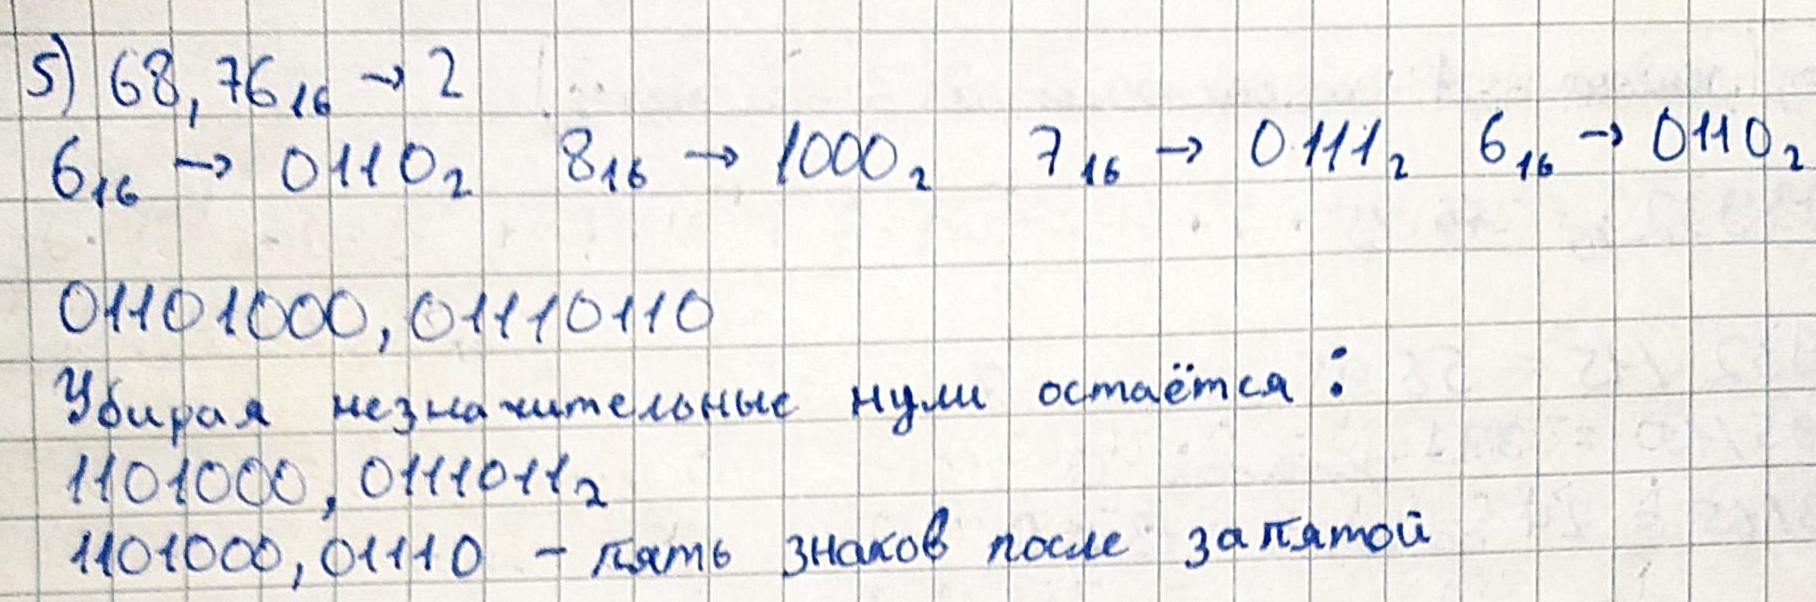 5) 68,76₁₆ → 2
6₁₆ → 0110₂ 8₁₆ → 1000₂ 7₁₆ → 0111₂ 6₁₆ → 0110₂
01101000,01110110
Убирая незначительные нули остаётся:
1101000,0111011₂
1101000,01110 – пять знаков после запятой